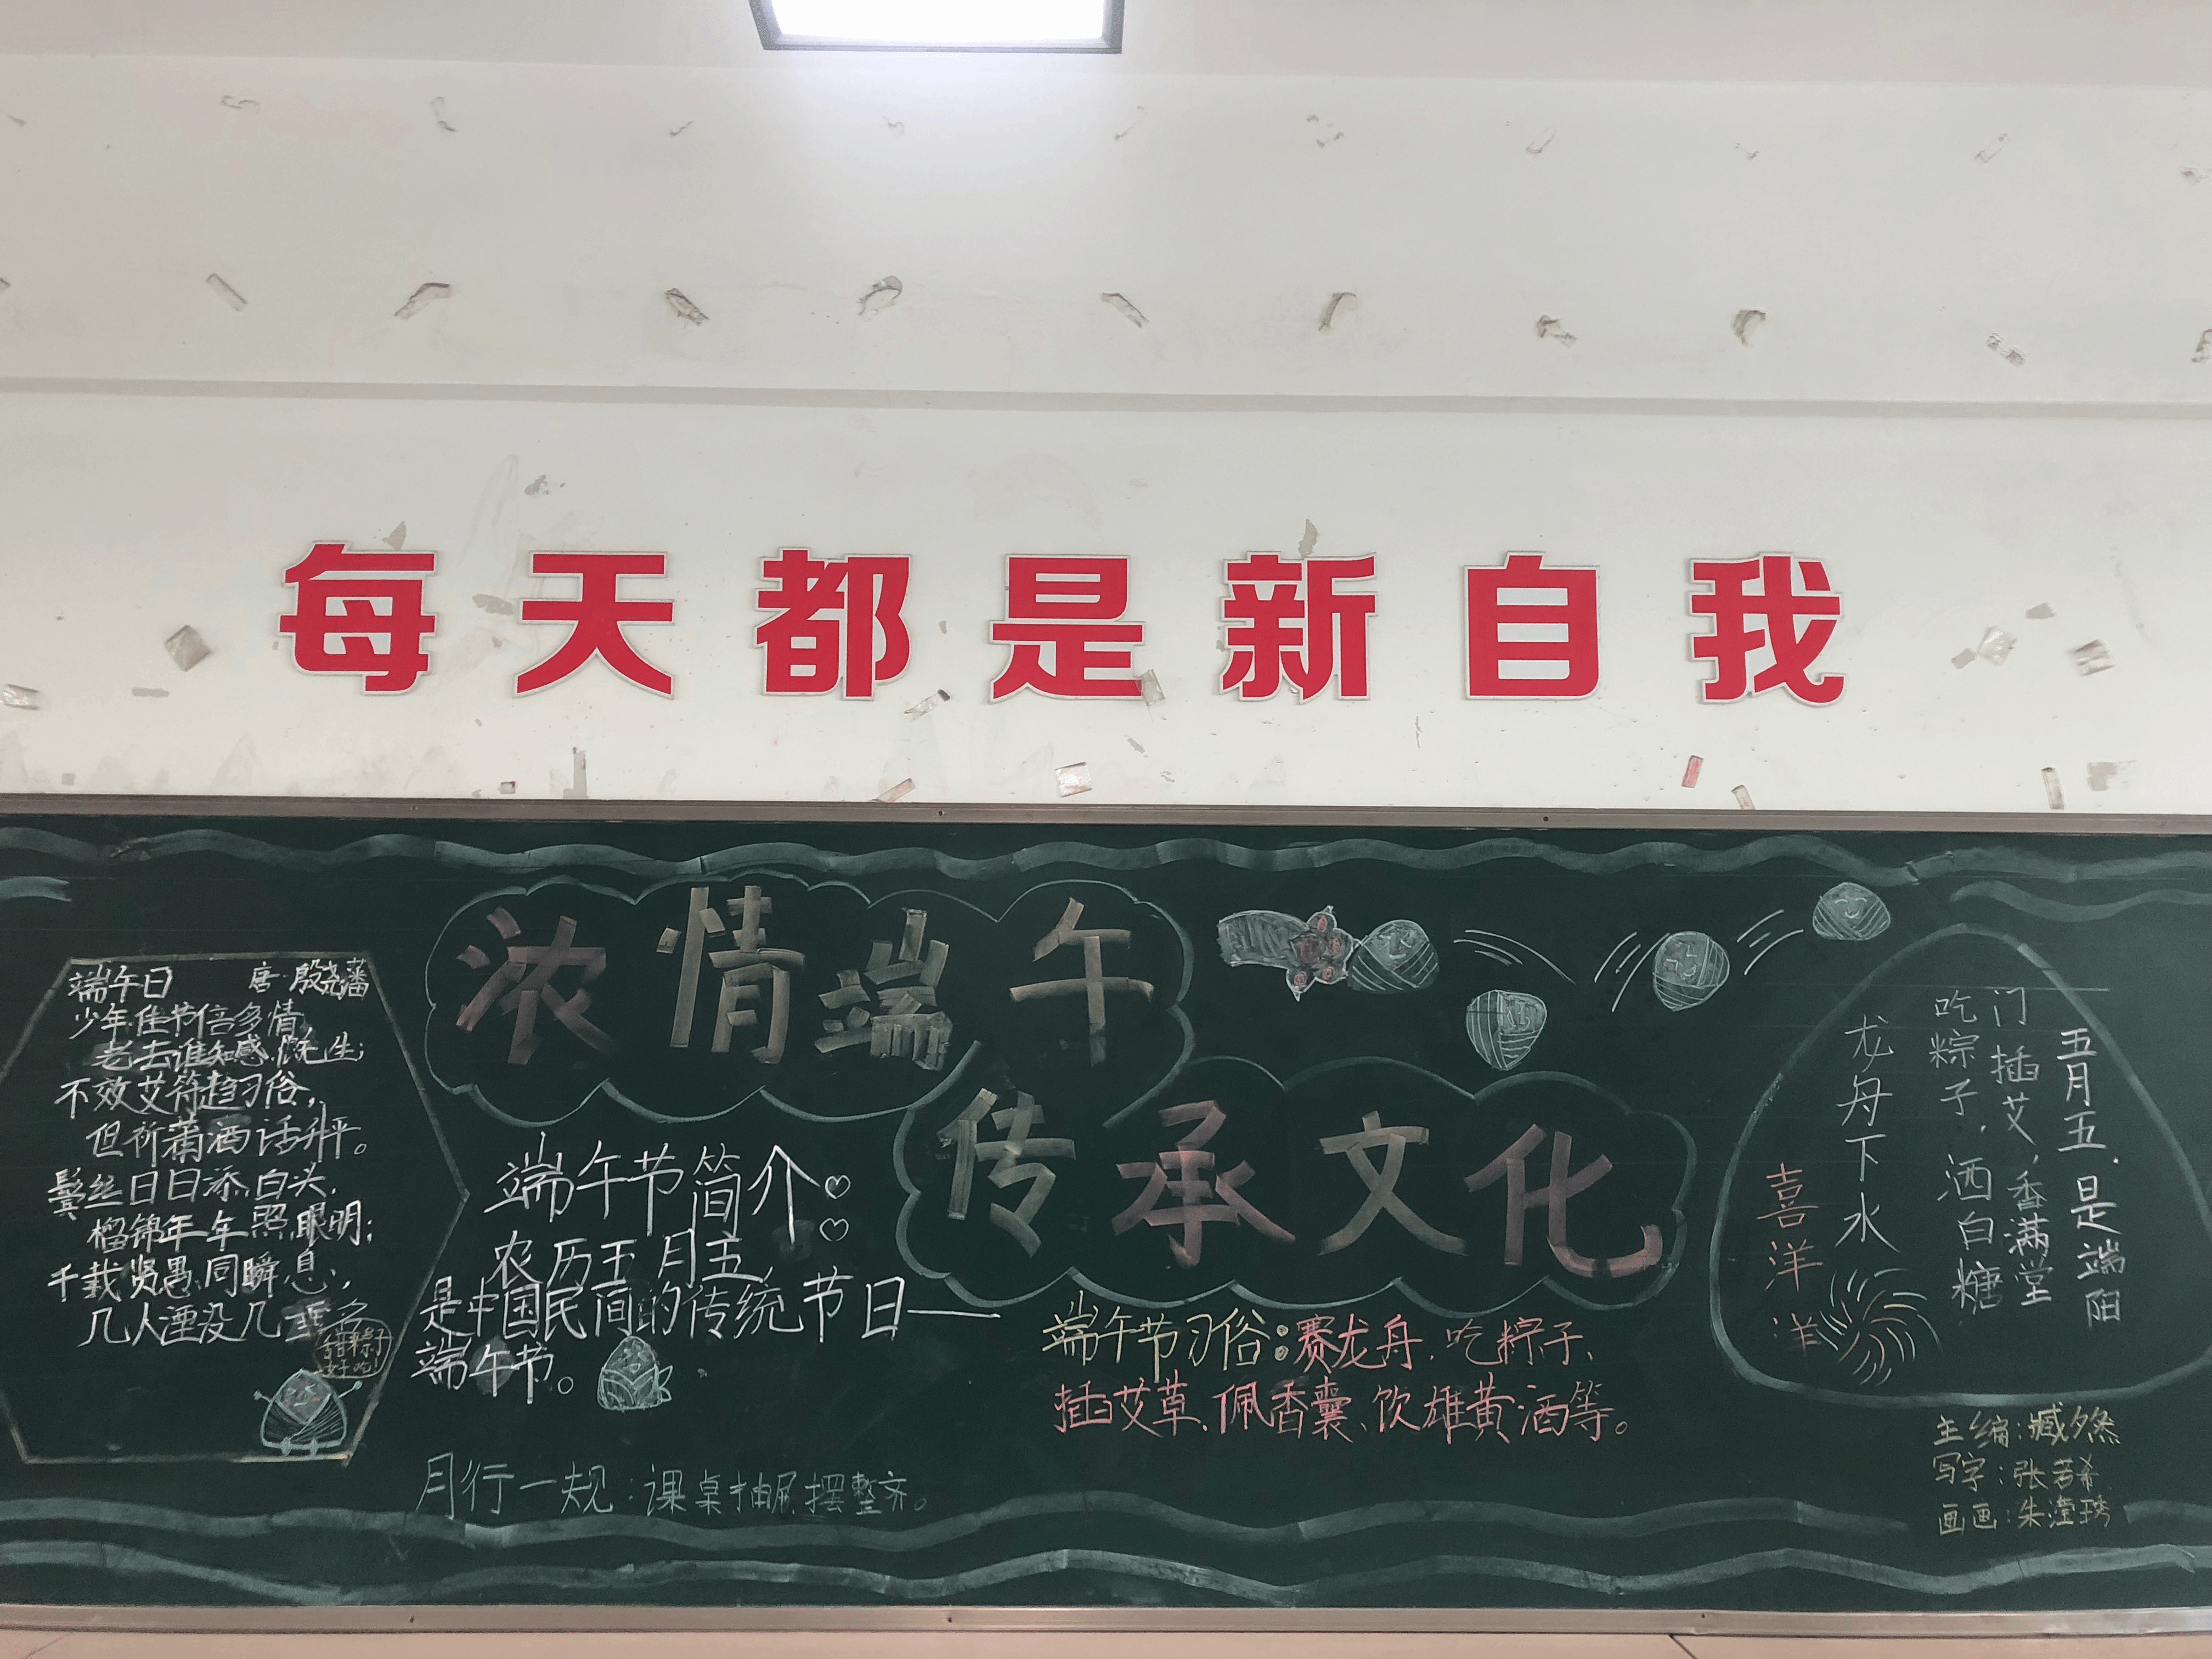 每天都是新自我
浓情端午
传承文化
端午日 唐·殷尧藩
少年佳节倍多情,
老去谁知感慨生;
不效艾符趋习俗,
但祈蒲酒话升平。
鬓丝日日添白头,
榴锦年年照眼明;
千载贤愚同瞬息,
几人湮没几垂名
甜粽子
好吃!
端午节简介:
农历五月五,
是中国民间的传统节日——
端午节。
月行一规:课桌抽屉摆整齐。
端午节习俗:赛龙舟、吃粽子、
插艾草、佩香囊、饮雄黄酒等。
五月五,是端阳
门插艾,香满堂
吃粽子,洒白糖
龙舟下水
喜洋洋
主编:臧夕然
写字:张若希
画画:朱滢琇